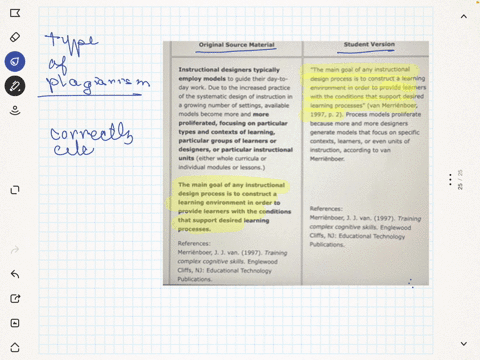 type
of
plagiarism
correctly
cite
Original Source Material
Instructional designers typically
employ models to guide their day-to-
day work. Due to the increased practice
of the systematic design of instruction in
a growing number of settings, available
models become more and more
proliferated, focusing on particular
types and contexts of learning,
particular groups of learners or
designers, or particular instructional
units (either whole curricula or
individual modules or lessons.)
The main goal of any instructional
design process is to construct a
learning environment in order to
provide learners with the conditions
that support desired learning
processes.
References:
Merriënboer, J. J. van. (1997). Training
complex cognitive skills. Englewood
Cliffs, NJ: Educational Technology
Publications.
Student Version
"The main goal of any instructional
design process is to construct a learning
environment in order to provide learners
with the conditions that support desired
learning processes" (van Merriënboer,
1997, p. 2). Process models proliferate
because more and more designers
generate models that focus on specific
contexts, learners, or even units of
instruction, according to van
Merriënboer.
References:
Merriënboer, J. J. van. (1997). Training
complex cognitive skills. Englewood
Cliffs, NJ: Educational Technology
Publications.
25 / 25